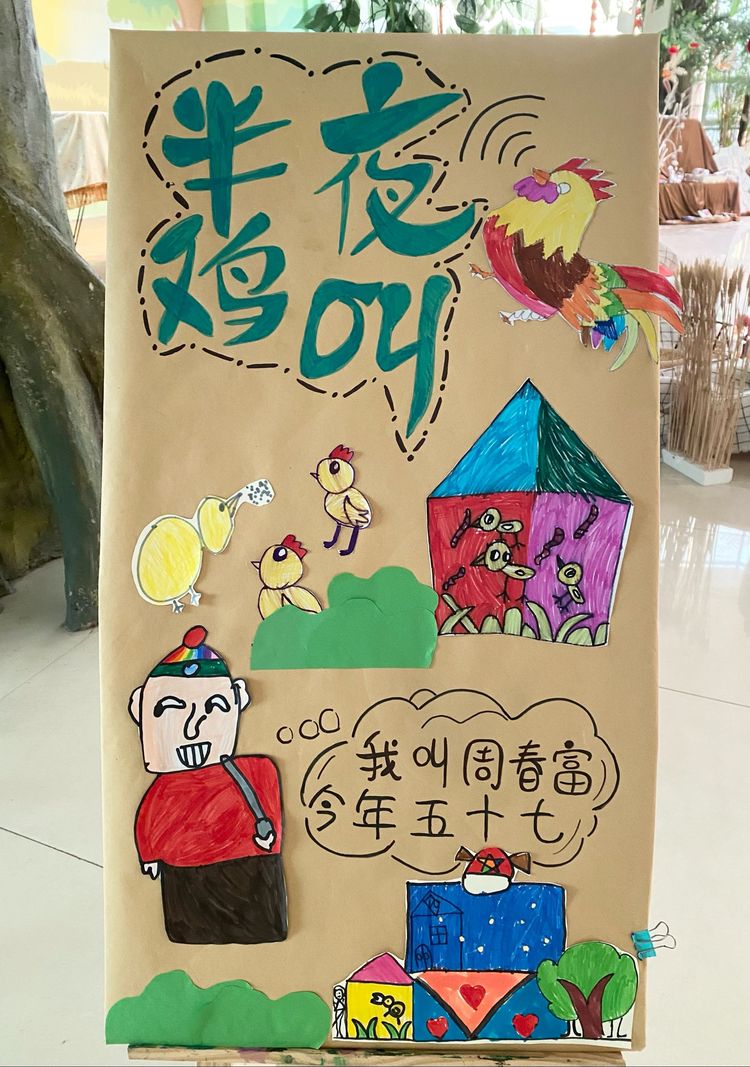 半夜
鸡叫
我叫周春富
今年五十七